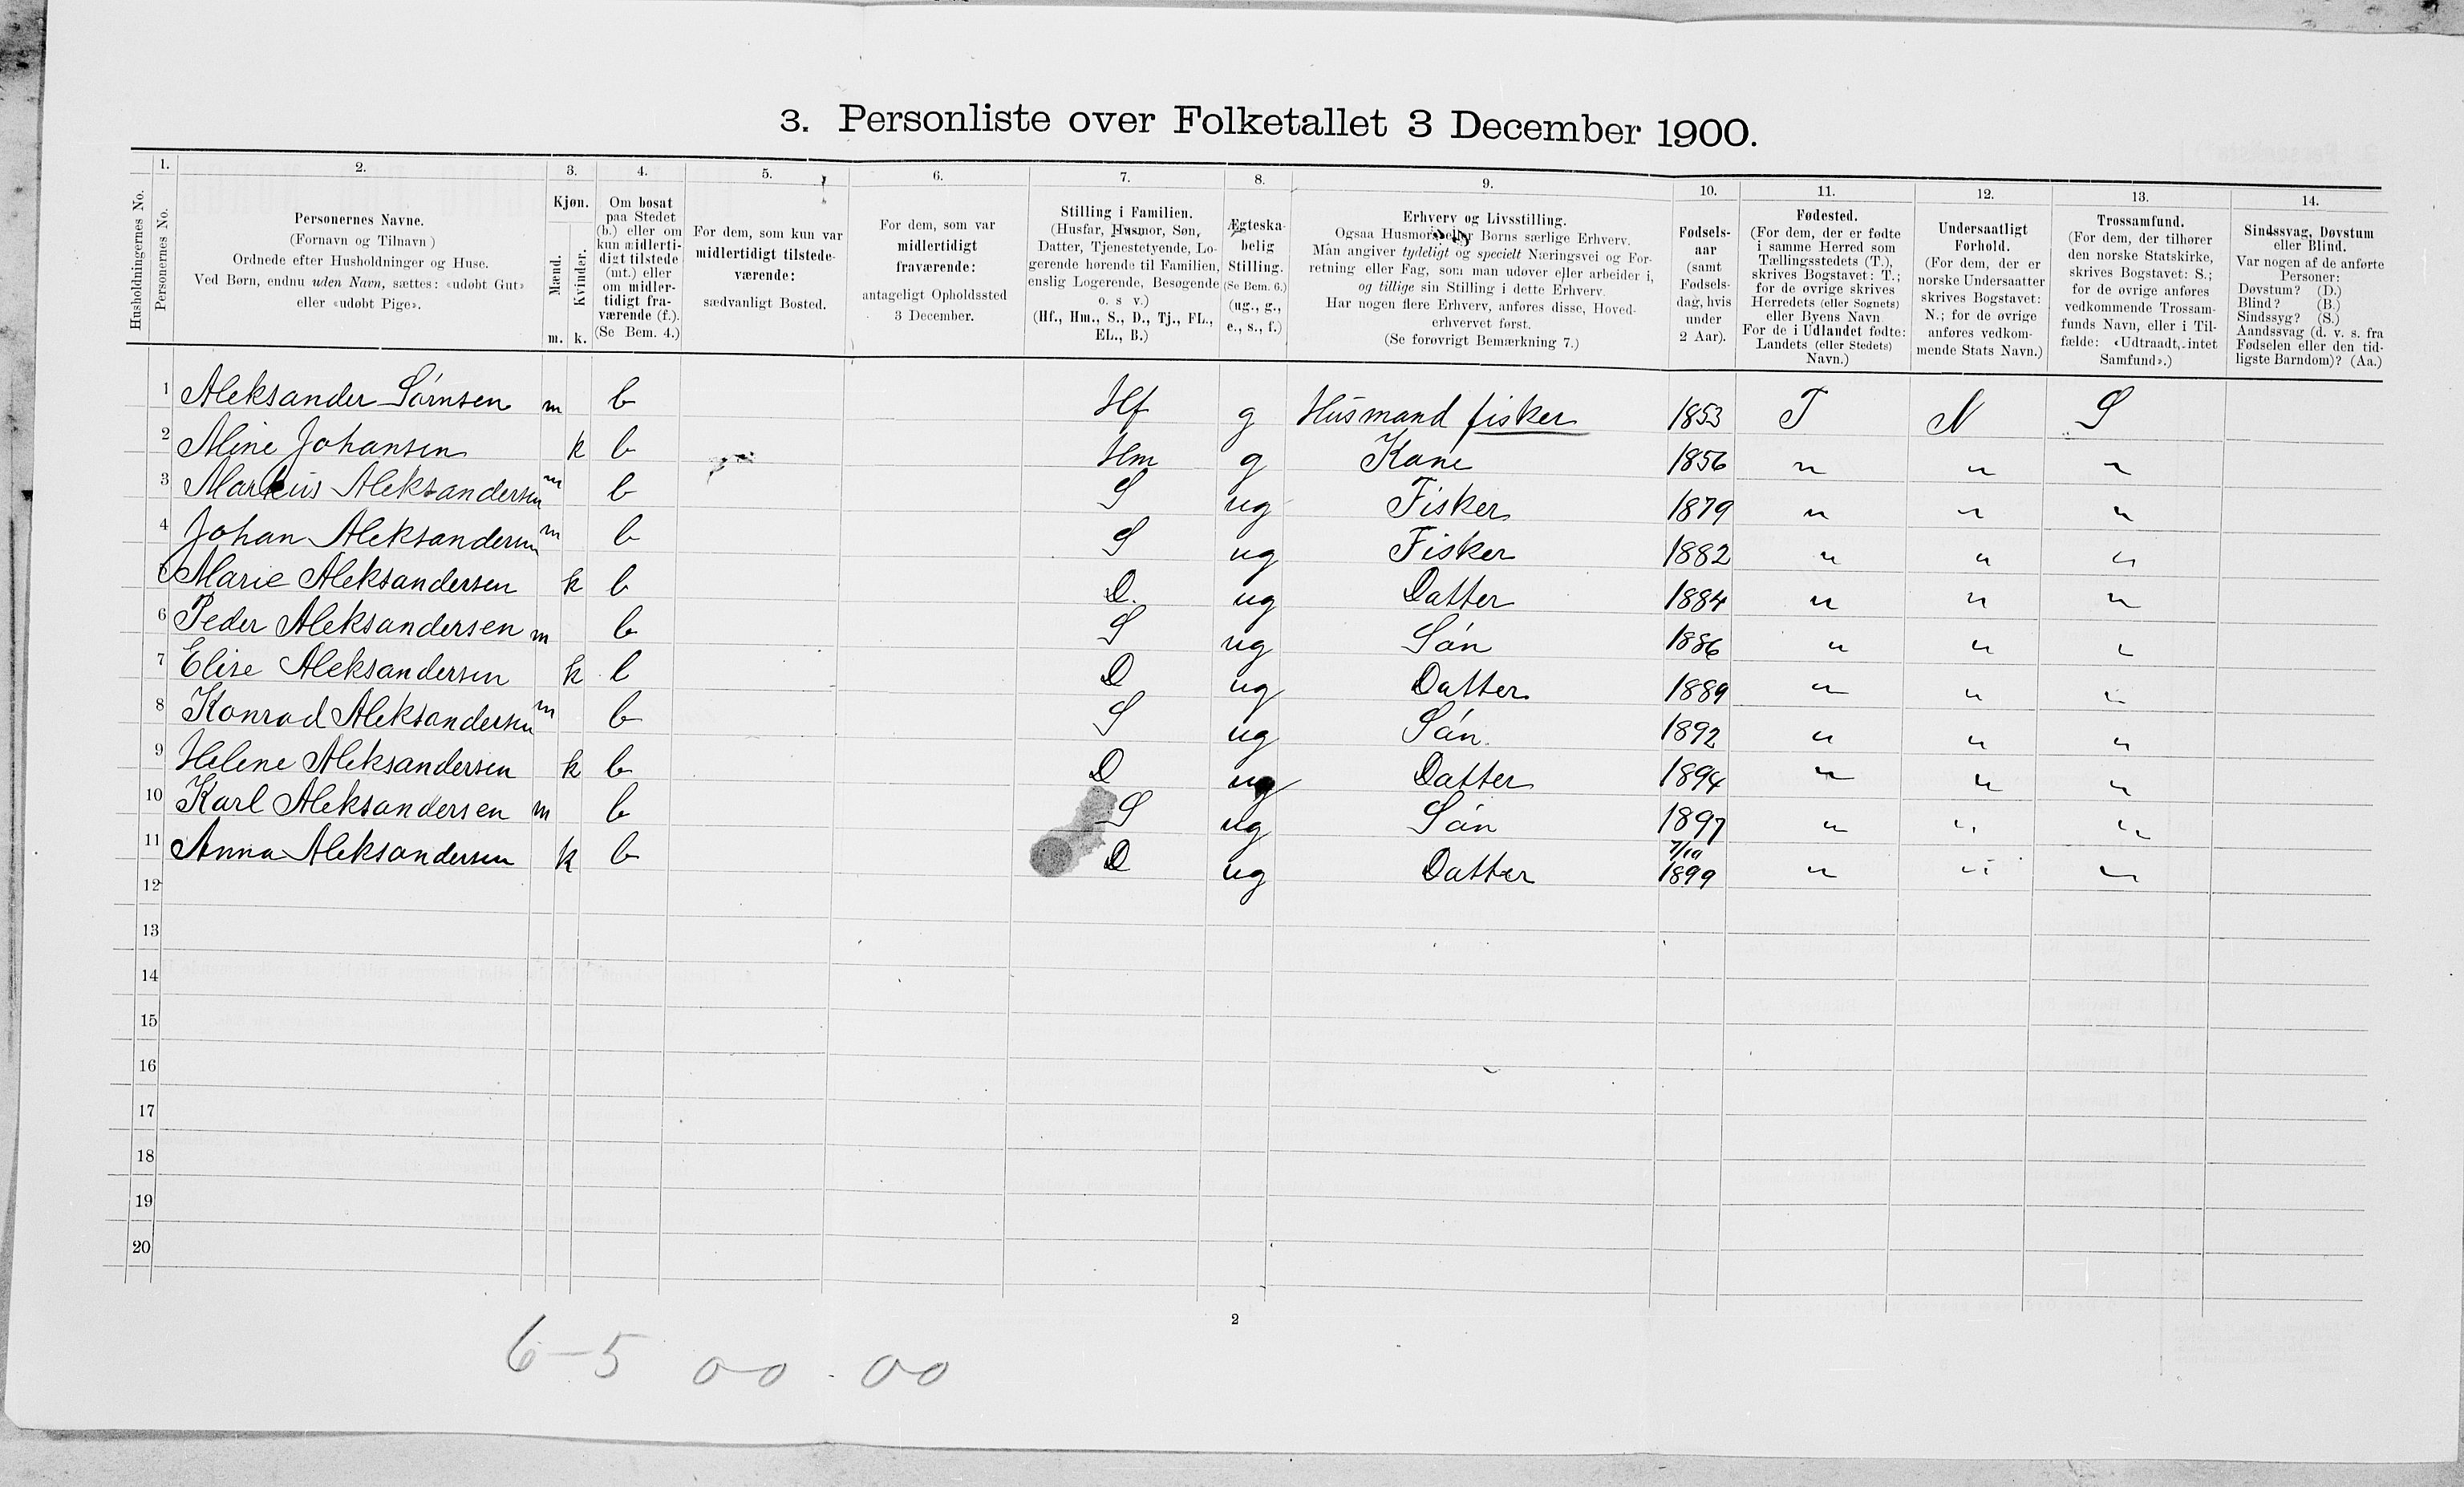 3. Personliste over Folketallet 3 December 1900.
1. 2. 3. 4. 5. 6. 7. 8. 9. 10. 11. 12. 13. 14.
Husholdningernes No.
Personernes No.
Personernes Navne.
(Fornavn og Tilnavn)
Ordnede efter Husholdninger og Huse.
Ved Børn, endnu uden Navn, sættes: «udøbt Gut»
eller «udøbt Pige».
Kjøn.
Mænd.
Kvinder.
m. k.
Om bosat
paa Stedet
(b.) eller om
kun midlerti-
digt tilstede
(mt.) eller
om midler-
tidigt fra-
værende (f.).
(Se Bem. 4.)
For dem, som kun var
midlertidigt tilstede-
værende:
sædvanligt Bosted.
For dem, som var
midlertidigt
fraværende:
antageligt Opholdssted
3 December.
Stilling i Familien.
(Husfar, Husmor, Søn,
Datter, Tjenestetyende, Lo-
gerende hørende til Familien,
enslig Logerende, Besøgende
o. s v.)
(Hf., Hm., S., D., Tj., FL.,
EL., B.)
Ægteska-
belig
Stilling.
(Se Bem. 6.)
(ug., g.,
e., s., f.)
Erhverv og Livsstilling.
Ogsaa Husmors eller Børns særlige Erhverv.
Man angiver tydeligt og specielt Næringsvei og For-
retning eller Fag, som man udøver eller arbeider i,
og tillige sin Stilling i dette Erhverv.
Har nogen flere Erhverv, anføres disse, Hoved-
erhvervet først.
(Se forøvrigt Bemærkning 7.)
Fødsels-
aar
(samt
Fødsels-
dag, hvis
under
2 Aar).
Fødested.
(For dem, der er fødte
i samme Herred som
Tællingsstedets (T.),
skrives Bogstavet: T.;
for de øvrige skrives
Herredets (eller Sognets)
eller Byens Navn
For de i Udlandet fødte:
Landets (eller Stedets)
Navn.)
Undersaatligt
Forhold.
(For dem, der er
norske Undersaatter
skrives Bogstavet:
N.; for de øvrige
anføres vedkom-
mende Stats Navn.)
Trossamfund.
(For dem, der tilhører
den norske Statskirke,
skrives Bogstavet: S.;
for de øvrige anføres
vedkommende Trossam-
funds Navn, eller i Til-
fælde: «Udtraadt, intet
Samfund».)
Sindssvag, Døvstum
eller Blind.
Var nogen af de anførte
Personer:
Døvstum? (D.)
Blind? (B.)
Sindssyg? (S.)
Aandssvag (d. v. s. fra
Fødselen eller den tid-
ligste Barndom)? (Aa.)
1 Aleksander Sørnsen m b Hf g Husmand fisker 1853 T N S
2 Aline Johansen k b Hm g Kone 1856 " " "
3 Markus Aleksandersen m b S ug Fisker 1879 " " "
4 Johan Aleksandersen m b S ug Fisker 1882 " " "
5 Marie Aleksandersen k b D. ug Datter 1884 " " "
6 Peder Aleksandersen m b S ug Søn 1886 " " "
7 Elise Aleksandersen k b D ug Datter 1889 " " "
8 Konrad Aleksandersen m b S ug Søn. 1892 " " "
9 Helene Aleksandersen k b D ug Datter 1894 " " "
10 Karl Aleksandersen m b S ug Søn 1897 " " "
11 Anna Aleksandersen k b D ug Datter 7/10 1899 " " "
12
13
14
15
16
17
18
19
20
2
6-5 00 . 00